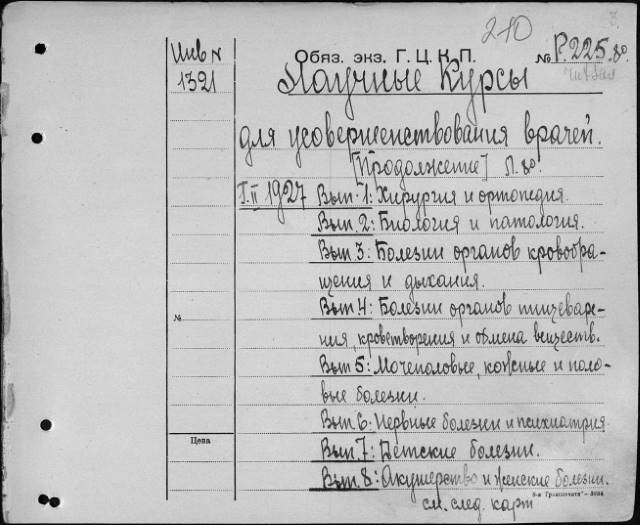 210
Инв №
1321
Обяз. экз. Г. Ц. К. П.
№ Р.225. 8о.
Научные Курсы
для усовершенствования врачей.
[Продолжение] Л. 8о.
Т. II 1927 Вып. 1: Хирургия и ортопедия.
Вып. 2: Биология и патология.
Вып 3: Болезни органов кровообра-
щения и дыхания.
№
Вып 4: Болезни органов пищеваре-
ния, кроветворения и обмена веществ.
Вып 5: Мочеполовые, кожные и поло-
вые болезни.
Вып 6: Нервные болезни и психиатрия
Цена
Вып. 7: Детские болезни.
Вып. 8: Акушерство и женские болезни.
см. след. карт